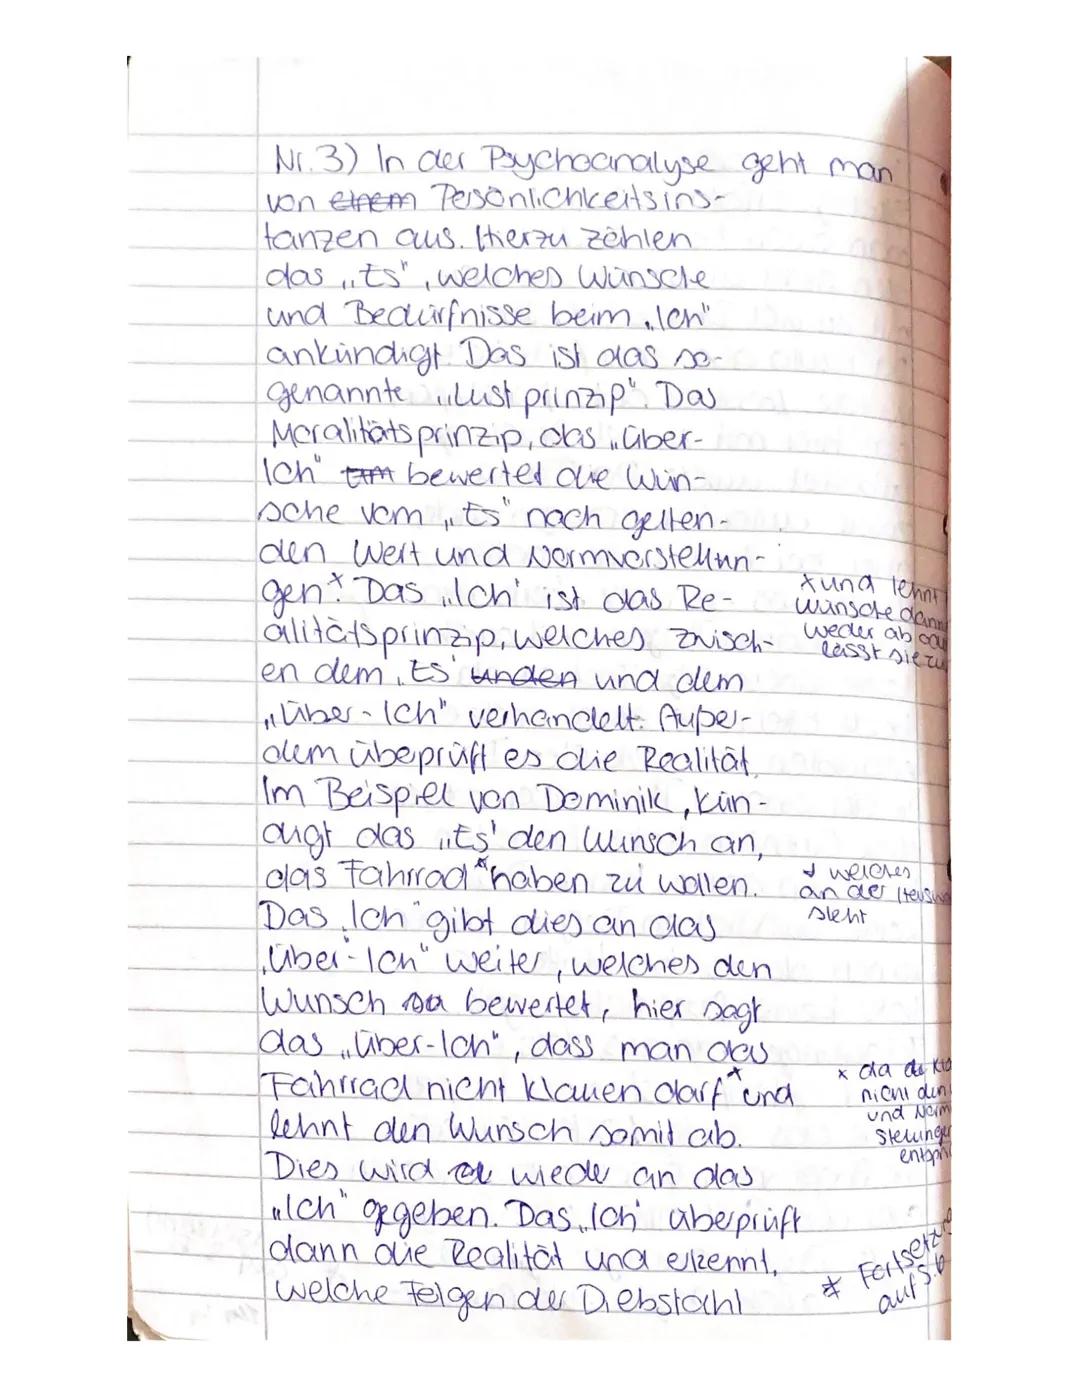 Nr. 3) In der Psychoanalyse geht man
von einem Persönlichkeitsins-
tanzen aus. Hierzu zählen
das „Es", welches Wünsche
und Bedürfnisse beim „Ich"
ankündigt. Das ist das so-
genannte „Lustprinzip". Das
Moralitätsprinzip, das „über-
Ich" bewertet die Wün-
sche vom „Es" nach gelten-
den Wert und Normvorstellun-
gen* Das „Ich' ist das Re-
alitätsprinzip, welches zwisch-
en dem „Es' und dem
„Über-Ich" verhandelt. Außer-
dem übeprüft es die Realität.
Im Beispiel von Dominik, kün-
digt das „Es' den Wunsch an,
das Fahrrad * haben zu wollen.
Das „Ich" gibt dies an das
„Über-Ich" weiter, welches den
Wunsch bewertet, hier sagt
das „Über-Ich", dass man das
Fahrrad nicht klauen darf * und
lehnt den Wunsch somit ab.
Dies wird wieder an das
„Ich" gegeben. Das „Ich' überprüft
dann die Realität und erkennt,
welche Folgen der Diebstahl
* und lehnt
Wünsche dann
weder ab
lässt sie zu
* welches
an der
steht
* da
nicht
und
* Fortsetzung
auf S.